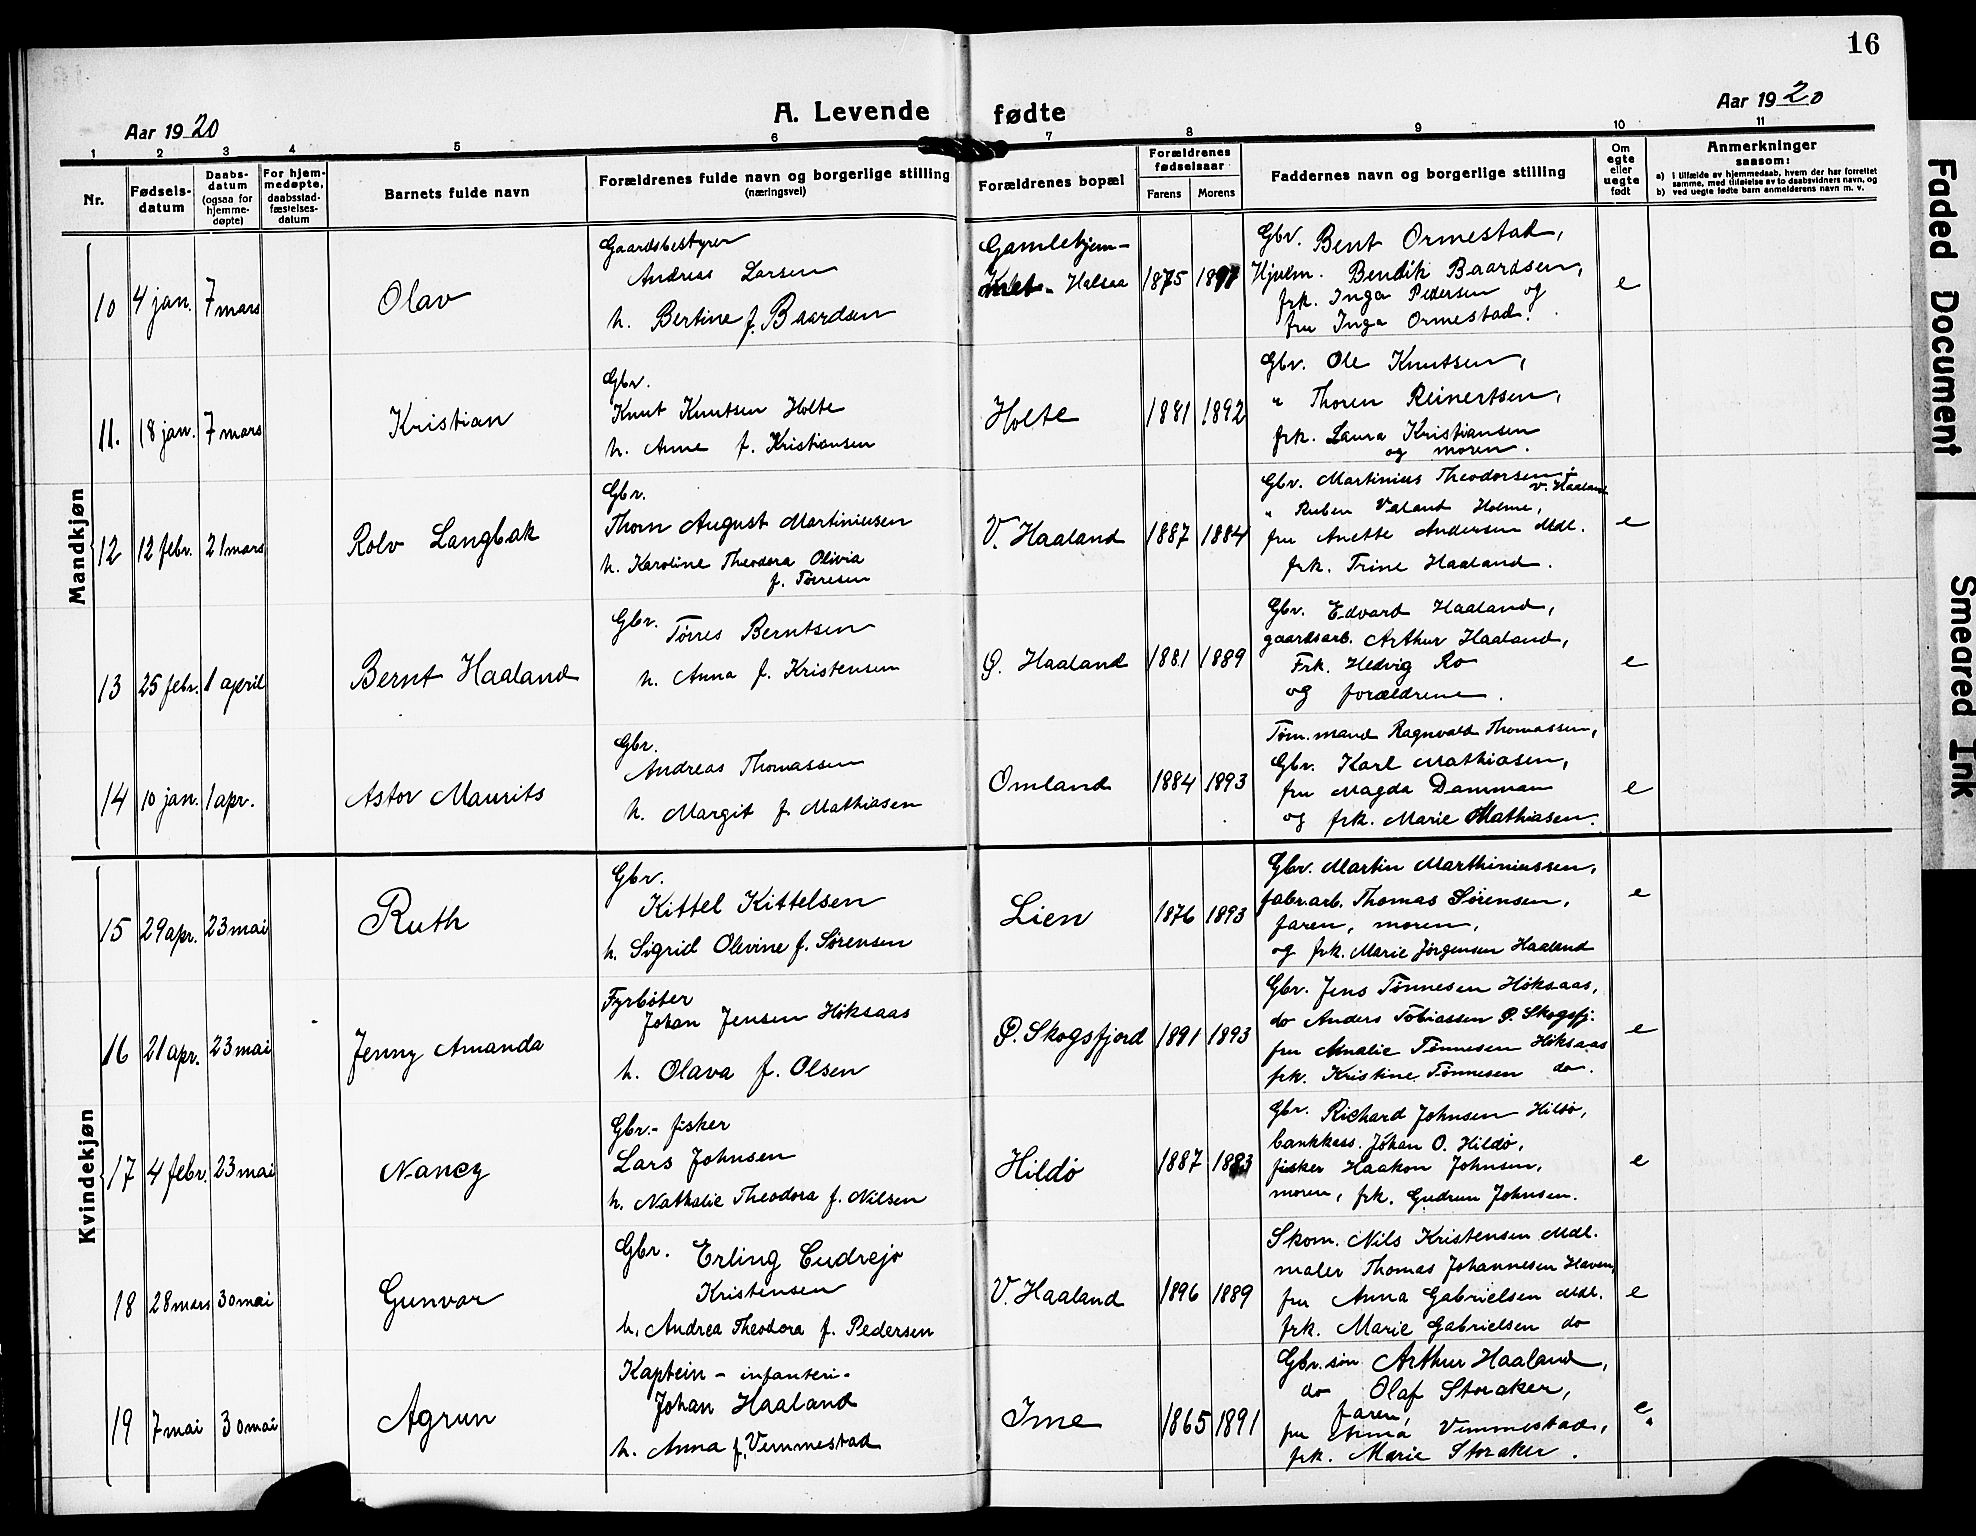 16
A. Levende fødte
Aar 1920
Aar 1920
1 2 3 4 5 6 7 8 9 10 11
Nr.
Fødsels-
datum
Daabs-
datum
(ogsaa for
hjemme-
døpte)
For hjem-
medøpte,
daabsstad-
fæstelses-
datum
Barnets fulde navn
Forældrenes fulde navn og borgerlige stilling
(næringsvei)
Forældrenes bopæl
Forældrenes
fødselsaar
Farens Morens
Faddernes navn og borgerlige stilling
Om
egte
eller
uegte
født
Anmerkninger
saasom:
a) i tilfælde av hjemmedaab, hvem der har forrettet
samme, med tilføielse av to daabsvidners navn, og
b) ved uegte fødte barn anmelderens navn m. v.
Mandkjøn
10 4 jan. 7 mars Olav
Gaardsbestyrer
Andreas Larsen
h. Bertine f. Baardsen
Gamlehjem-
met - Halsaa 1875
Gbr. Bent Ormestad,
Hjulm. Bendik Baardsen,
frk. Inga Pedersen og
fru Inga Ormestad.
e
11. 18 jan. 7 mars Kristian
Gbr.
Knut Knutsen Holte
h. Anne f. Kristiansen
Holte 1881 1892
Gbr. Ole Knutsen,
" Thoren Reinertsen,
frk. Laura Kristiansen
og moren.
12 12 febr. 21 mars Rolv Langbak
Gbr.
Thom August Martiniusen
h. Karoline Theodora Olivia
f. Tørresen
V. Haaland 1887 1884
Gbr. Martinius Theodorsen
V. Haaland
" Ruben Valand Holme,
fru Anette Andersen Mdl.
frk. Trine Haaland.
e
13 25 febr. 1 april Bernt Haaland
Gbr. Tørres Berntsen
h. Anna f. Kristensen
Ø. Haaland 1881 1889
Gbr. Edvard Haaland,
gaardsarb. Arthur Haaland,
Frk. Hedvig Ro
og forældrene.
e
14 10 jan. 1 apr. Astor Maurits
Gbr.
Andreas Thomassen
h. Margit f. Mathiasen
Omland 1884 1893
Tøm.mand Ragnvald Thomassen,
Gbr. Karl Mathiasen,
fru Magda Damman
og frk. Marie Mathiasen.
e
Kvindekjøn
15 29 apr. 23 mai Ruth
Gbr.
Kittel Kittelsen
h. Sigrid Olevine f. Sørensen
Lien 1876 1893
Gbr. Martin Marthiniussen,
fabr.arb. Thomas Sørensen,
faren, moren,
og frk. Marie Jørgensen Haaland
e
16 21 apr. 23 mai Jenny Amanda
Fyrbøter
Johan Jensen Høksaas
h. Olava f. Olsen
Ø. Skogsfjord 1891 1893
Gbr. Jens Tønnesen Høksaas,
do Anders Tobiassen Ø. Skogsfj.
fru Amalie Tønnesen Høksaas
frk. Kristine Tønnesen do.
e
17 4 febr. 23 mai Nancy
Gbr.- fisker
Lars Johnsen
h. Nathalie Theodora f. Nilsen
Hildø 1887 1883
Gbr. Richard Johnsen Hildø,
bankkass. Johan O. Hildø,
fisker Haakon Johnsen,
moren, frk. Gudrun Johnsen.
e
18 28 mars 30 mai Gunvor
Gbr. Erling Cudrejo
Kristensen
h. Andrea Theodora f. Pedersen
V. Haaland 1896 1889
Skom. Nils Kristensen Mdl.
maler Thomas Johannesen Haven,
fru Anna Gabrielsen Mdl.
frk. Marie Gabrielsen do
e
19 7 mai 30 mai Agrun
Kaptein - infanteri -
Johan Haaland
h. Anna f. Vemmestad
Ime 1865 1891
Gbr. søn Arthur Haaland,
do Olaf Storaker,
faren,
fru Vemmestad,
frk. Marie Storaker.
e
Faded Document
Smeared Ink